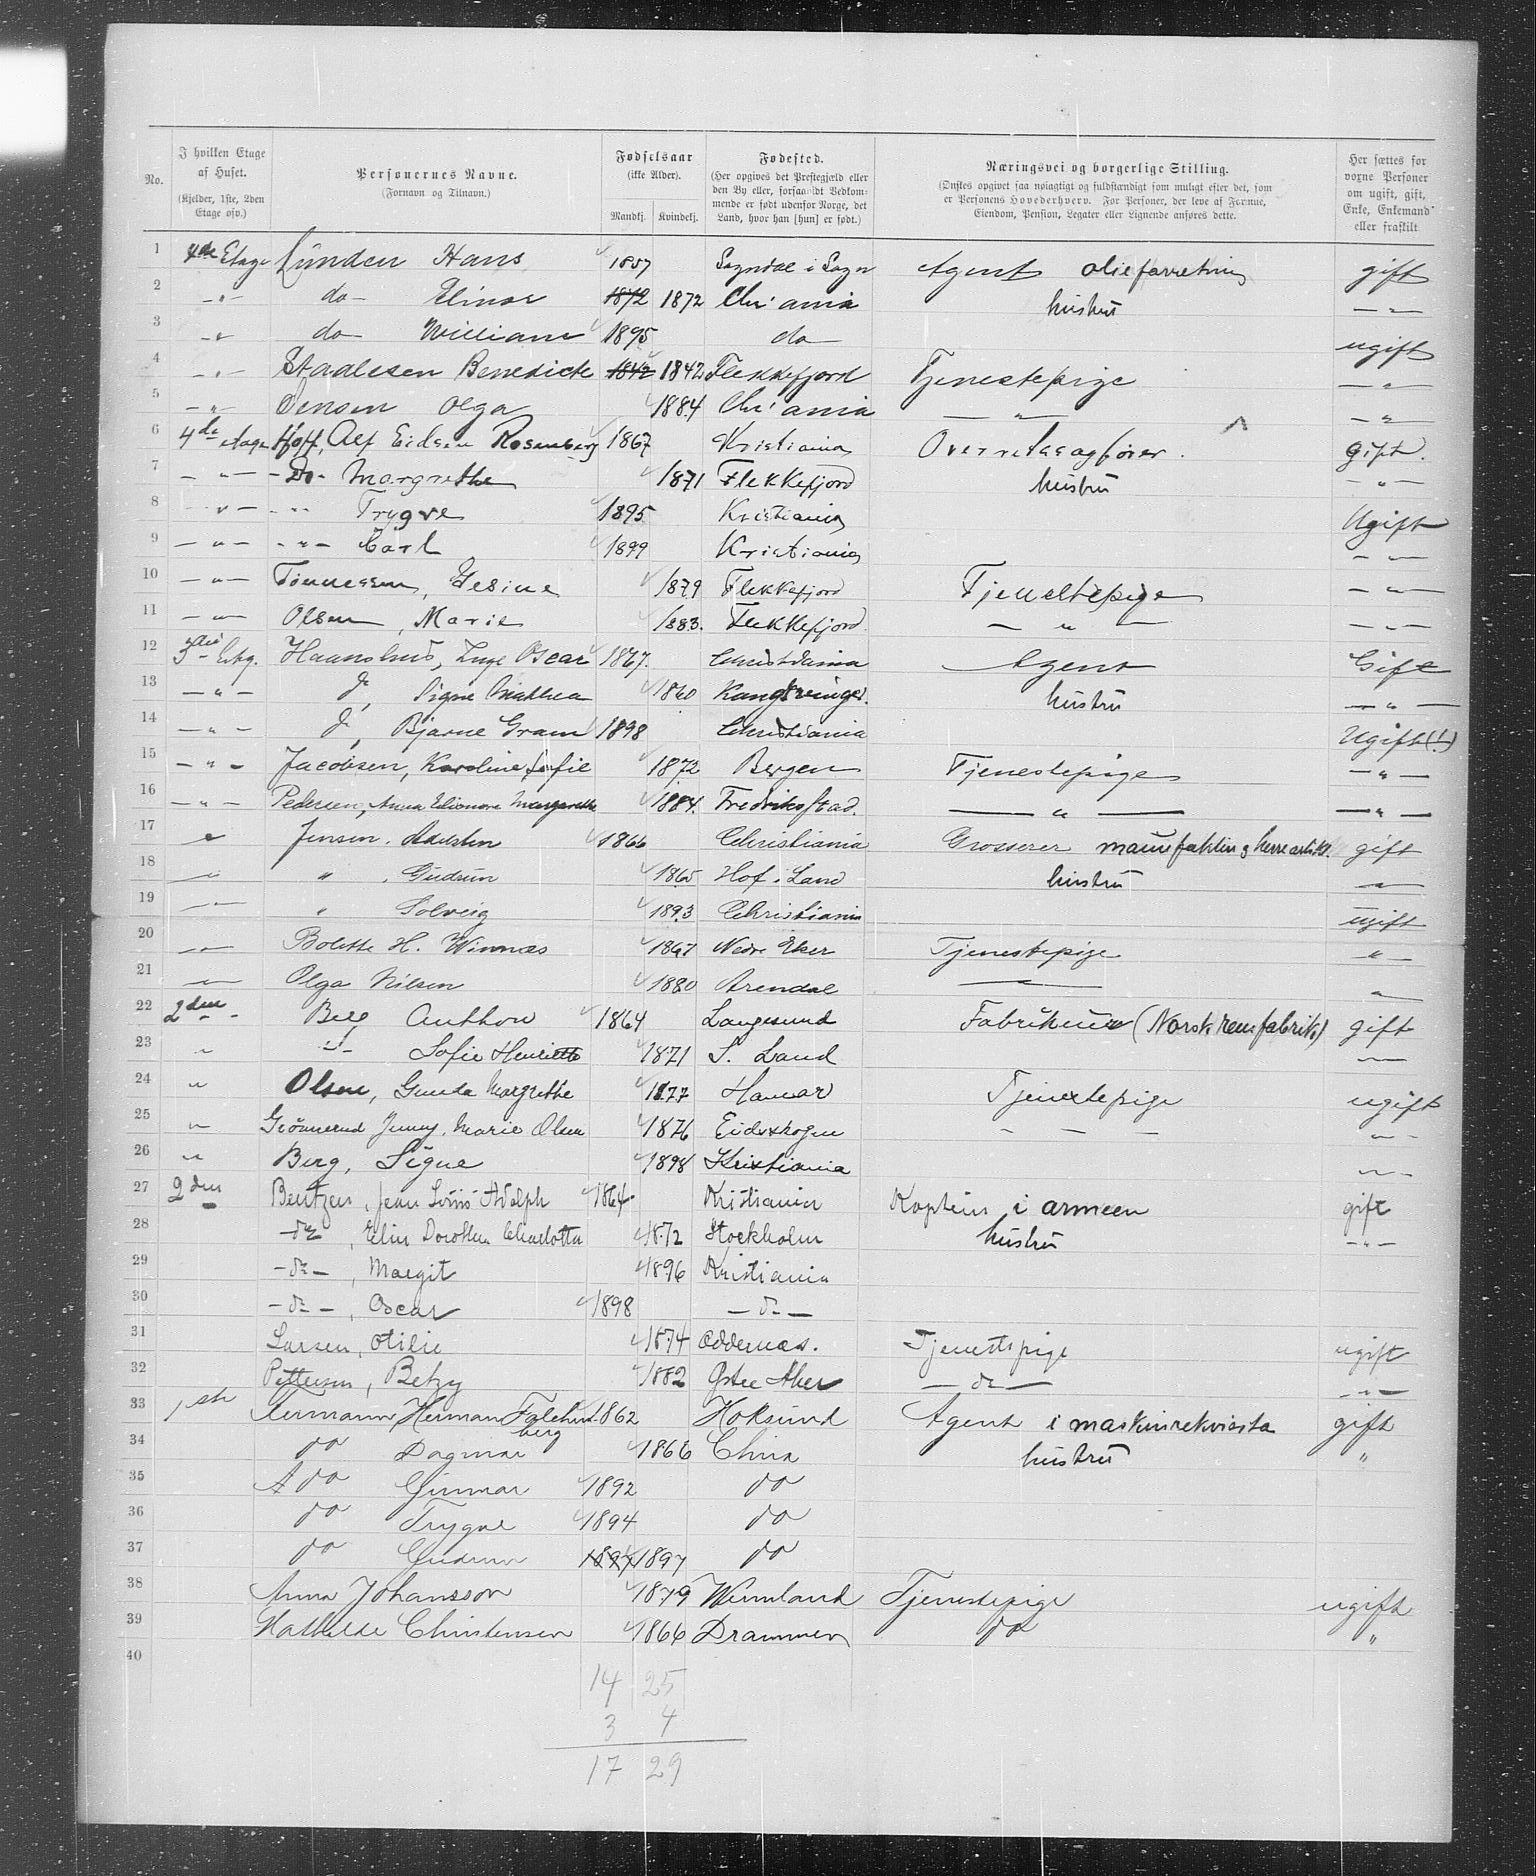 No. | I hvilken Etage af Huset. (Kjelder, 1ste, 2den Etage osv.) | Personernes Navne. (Fornavn og Tilnavn.) | Fødselsaar (ikke Alder). Mandkj. Kvindekj. | Fødested. (Her opgives det Prestegjæld eller den By eller, forsaavidt Vedkommende er født udenfor Norge, det Land, hvor han [hun] er født.) | Næringsvei og borgerlige Stilling. (Ønskes opgivet saa nøiagtigt og fuldstændigt som muligt efter det, som er Personens Hovederhverv. For Personer, der leve af Formue, Eiendom, Pension, Legater eller Lignende anføres dette. | Her sættes for voxne Personer om ugift, gift, Enke, Enkemand eller fraskilt
1 4de Etage Lunden Hans 1857 Sogndal i Sogn Agent olieforretning gift
2 -"- do Elinor 1872 1872 Chr'ania hustru -"-
3 -"- do William 1895 do ugift
4 -"- Stadlesen Benedicte 1842 1842 Flekkefjord Tjenestepige -"-
5 -"- Jensen Olga 1884 Chr'ania -"- -"-
6 4de etage Hoff, Alf Eidsen Rosenberg 1867 Kristiania Overretssagfører. gift.
7 -"- Do- Margrethe 1871 Flekkefjord hustru -"-
8 -"- -"- Trygve 1895 Kristiania Ugift
9 -"- -"- Carl 1899 Kristiania -"-
10 -"- Tönnessen, Gesine 1879 Flekkefjord Tjenestepige -"-
11 -"- Olsen, Marie 1883. Flekkefjord -"- -"-
12 3die Etg. Haanshus, Inge Oscar 1867. Christiania Agent Gift
13 -"- do, Signe Mathea 1860 Kongsvinger. hustru -"-
14 -"- do, Bjarne Gram 1898 Christiania Ugift(!)
15 -"- Jacobsen, Karoline Sofie 1872 Bergen Tjenestepige -"-
16 -"- Pedersen, Anna Elionore Margarethe 1884. Fredrikstad. -"- -"-
17 " Jensen. Aadsten 1866 Christiania Grosserer manufaktur og herreartikl. gift
18 -"- " . Gudrun 1865 Hof i Land hustru -"-
19 -"- " Solveig 1893 Christiania ugift
20 -"- Bolette H. Winnæs 1867 Nedre Eker Tjenestepige -"-
21 -"- Olga Nilsen 1880 Arendal -"- -"-
22 2den Bell Anthon 1864 Langesund Fabrikeier (Norsk remfabrik) gift
23 " -"- Sofie Henriette 1871 S. Land -"-
24 " Olsen, Gunda Margrethe 1877 Hamar Tjenestepige ugift
25 " Grönnerud Jenny, Marie Olsen 1876 Eidskogen - - - -"-
26 " Berg, Signe 1898 Kristiania -"-
27 2den Bentzen, Jean Louis Adolph 1864. Kristiania Kaptein i armeen gift
28 -do-, Elin Dorothea Charlotta 1872 Stockholm hustru -"-
29 -do-, Margit 1896 Kristiania
30 -do-, Oscar 1898 -do-
31 Larsen, Otilie 1874 Oddernæs. Tjenestepige ugift
32 Pettersen, Betzy 1882 Østre Aker -do- -"-
33 1ste Hermann Herman Falchenberg 1862 Hoksund Agent i maskinrekvisita gift
34 do Dagmar 1866 China hustru "
35 do Gunnar 1892 do
36 do Trygve 1894 do
37 do Gudrun 1897 1897 do
38 Anna Johansson 1879 Wermland Tjenestepige ugift
39 Mathilde Christensen 1866 Drammen do "
40
14 25
3 4
17 29